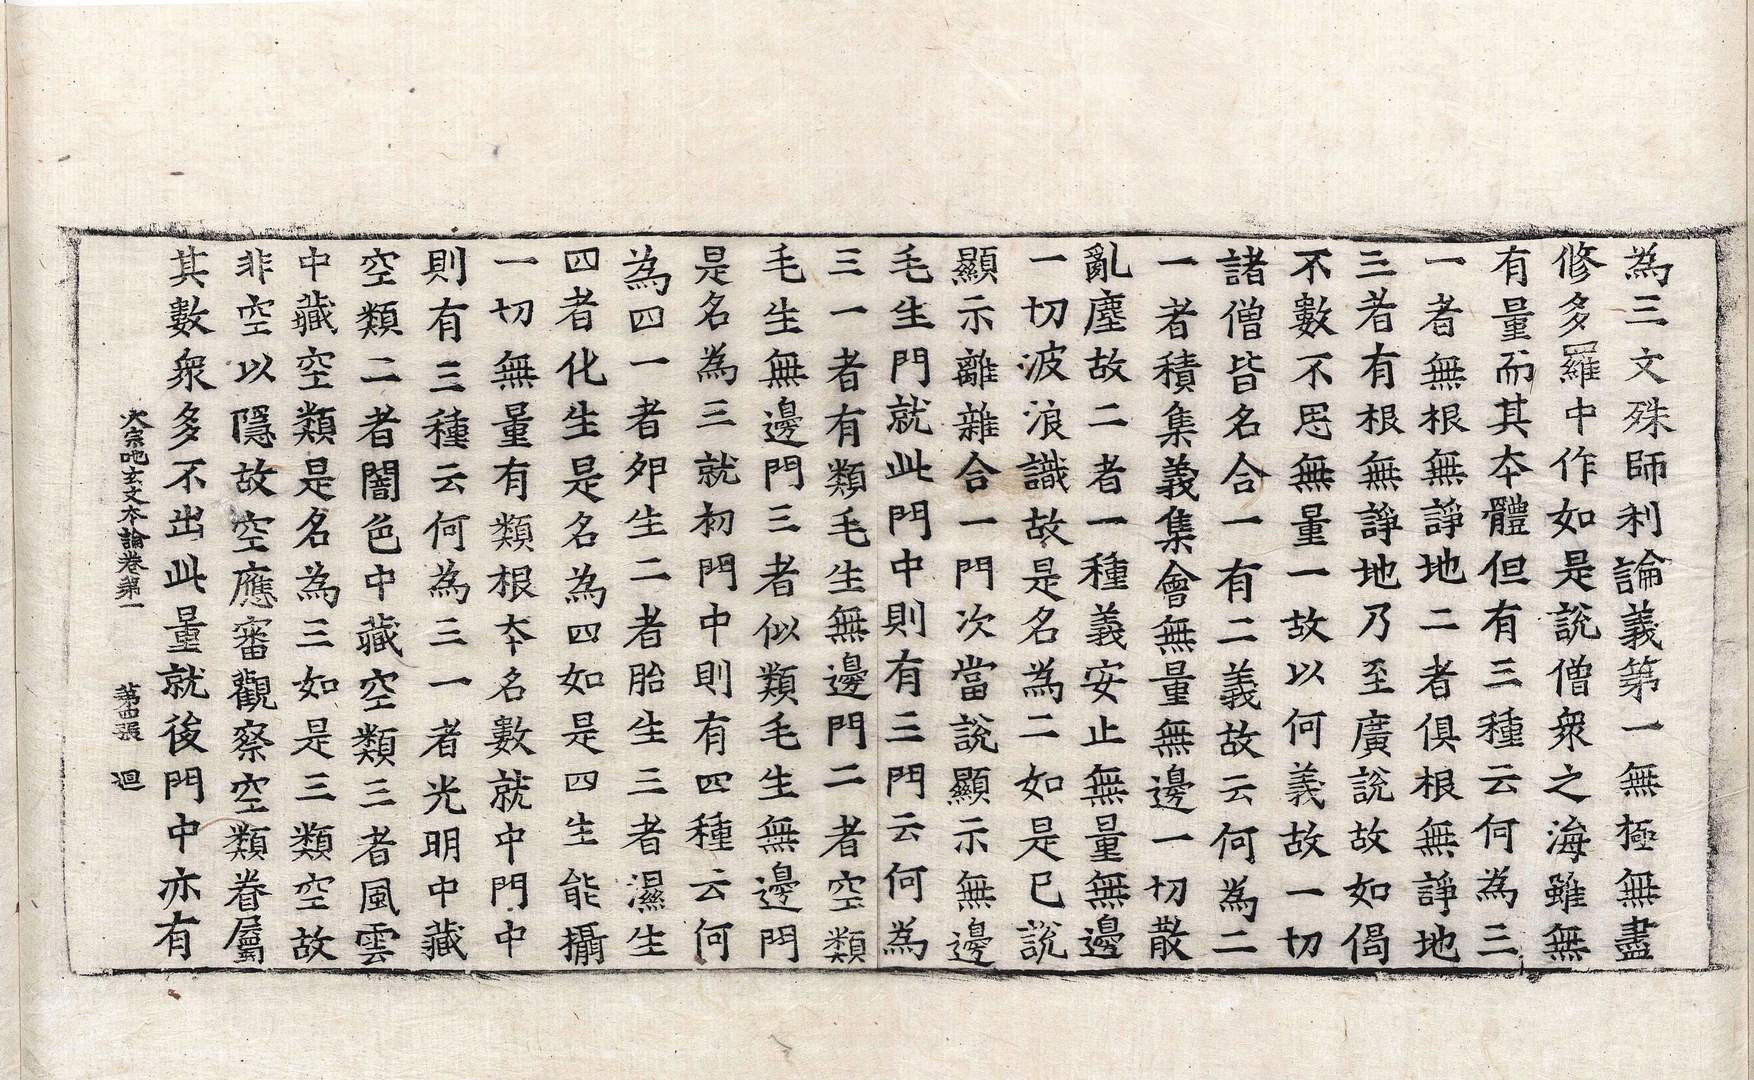 為三文殊師利論義第一無極無盡
修多羅中作如是說僧衆之海雖無
有量而其夲體但有三種云何為三
一者無根無諍地二者俱根無諍地
三者有根無諍地乃至廣說故如偈
不數不思無量一故以何義故一切
諸僧皆名合一有二義故云何為二
一者積集義集會無量無邊一切散
亂塵故二者一種義安止無量無邊
一切波浪識故是名為二如是已說
顯示離雜合一門次當說顯示無邊
毛生門就此門中則有三門云何為
三一者有類毛生無邊門二者空類
毛生無邊門三者似類毛生無邊門
是名為三就初門中則有四種云何
為四一者卵生二者胎生三者濕生
四者化生是名為四如是四生能攝
一切無量有類根夲名數就中門中
則有三種云何為三一者光明中藏
空類二者闇色中藏空類三者風雲
中藏空類是名為三如是三類空故
非空以隱故空應審觀察空類眷屬
其數衆多不出此量就後門中亦有
大宗地玄文本論卷第一 第四張 迴